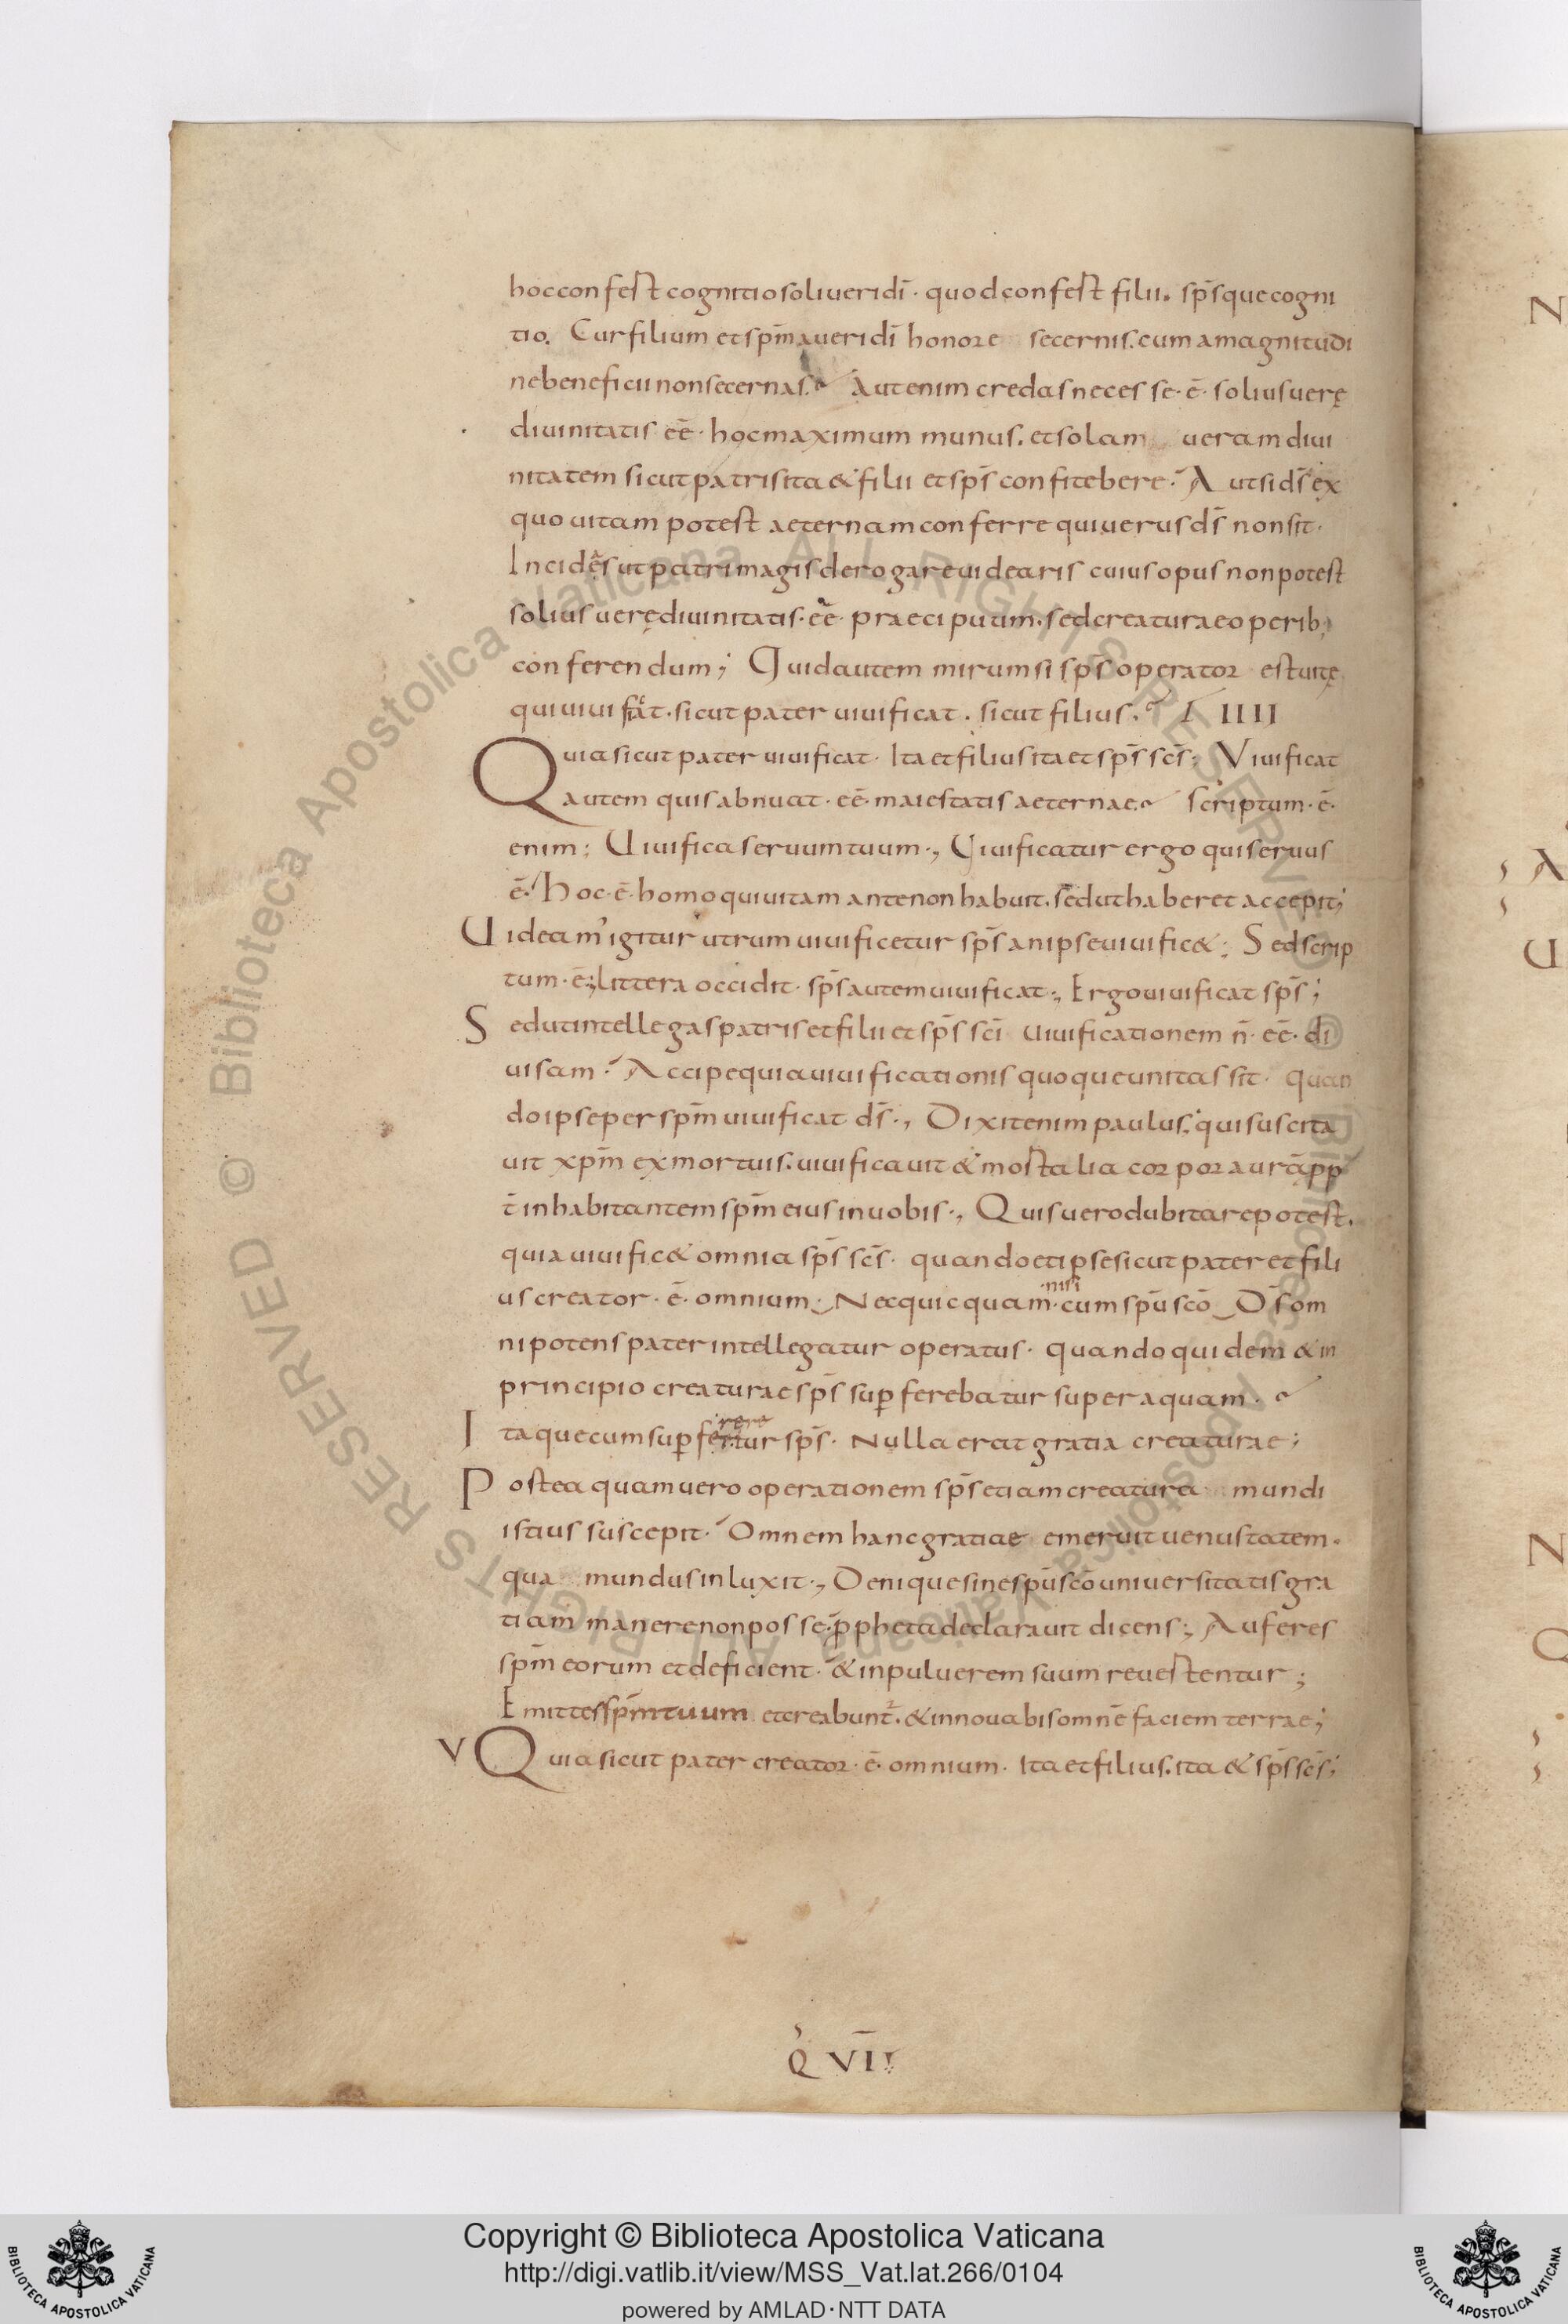 hoc confert cognitio soli ueri dī · quod confert filii · sp̄sque cogni
tio. Cur filium et sp̄m a ueri dī honore secernis. cum a magnitudi
ne beneficii non secernas. Aut enim credas necesse · ē · solius uerę
diuinitatis eē · hoc maximum munus. et solam ueram diui
nitatem sicut patris ita & filii et sp̄s confitebere · Aut si d̄s ex
quo uitam potest aeternam conferre qui uerus d̄s non sit ·
Incidēs ut patri magis derogare uidearis cuius opus non potest
solius uerę diuinitatis · eē · praecipuum · sed creaturae operib;
conferendum; Quid autem mirum si sp̄s operator est uitę
qui uiuificat · sicut pater uiuificat · sicut filius. IIII
Quia sicut pater uiuificat · Ita et filius ita et sp̄s sc̄s; Viuificat
autem quis abnuat · eē · maiestatis aeternae. scriptum · ē ·
enim; Uiuifica seruum tuum ·, Uiuificatur ergo qui seruus
ē · Hoc · ē · homo qui uitam ante non habuit. sed ut haberet accepit;
Uideam' igitur utrum uiuificetur sp̄s an ipse uiuific&; Sed scrip
tum · ē; littera occidit · sp̄s autem uiuificat ·, Ergo uiuificat sp̄s;
Sed ut intellegas patris et filii et sp̄s sc̄i uiuificationem n̄ · eē · di
uisam · Accipe quia uiuificationis quoque unitas sit · quan
do ipse per sp̄m uiuificat d̄s ·, Dixit enim paulus. qui suscita
uit xp̄m ex mortuis. uiuificauit & mortalia corpora ur̄a pp
t̄ inhabitantem sp̄m eius in uobis ·, Quis uero dubitare potest.
quia uiuific& omnia sp̄s sc̄s · quando et ipse sicut pater et fili
us creator · ē · omnium · Nec quicquam · nisi cum sp̄u sc̄o D̄s om
nipotens pater intellegatur operatus · quando quidem & in
principio creaturae sp̄s sup̄ferebatur super aquam ·
Itaque cum sup̄fertur rere sp̄s · Nulla erat gratia creaturae;
Postea quam uero operationem sp̄s etiam creatura mundi
istius suscepit · Omnem hanc gratiae emeruit uenustatem ·
qua mundus inluxit ·, Denique sine sp̄u sc̄o uniuersitatis gra
tiam manere non posse · p̄pheta declarauit dicens; Auferes
sp̄m eorum et deficient · & in puluerem suum reuertentur;
Emittes sp̄m tuum et creabunt̄ · & innouabis omnē faciem terrae;
V Quia sicut pater creator · ē · omnium · Ita et filius. ita & sp̄s sc̄s;
Q VII
N
A
U
N
Q
© Biblioteca Apostolica Vaticana ALL RIGHTS RESERVED © Biblioteca Apostolica Vaticana ALL RIGHTS RESERVED
Copyright © Biblioteca Apostolica Vaticana
http://digi.vatlib.it/view/MSS_Vat.lat.266/0104
powered by AMLAD·NTT DATA
BIBLIOTECA APOSTOLICA VATICANA
BIBLIOTECA APOSTOLICA VATICANA